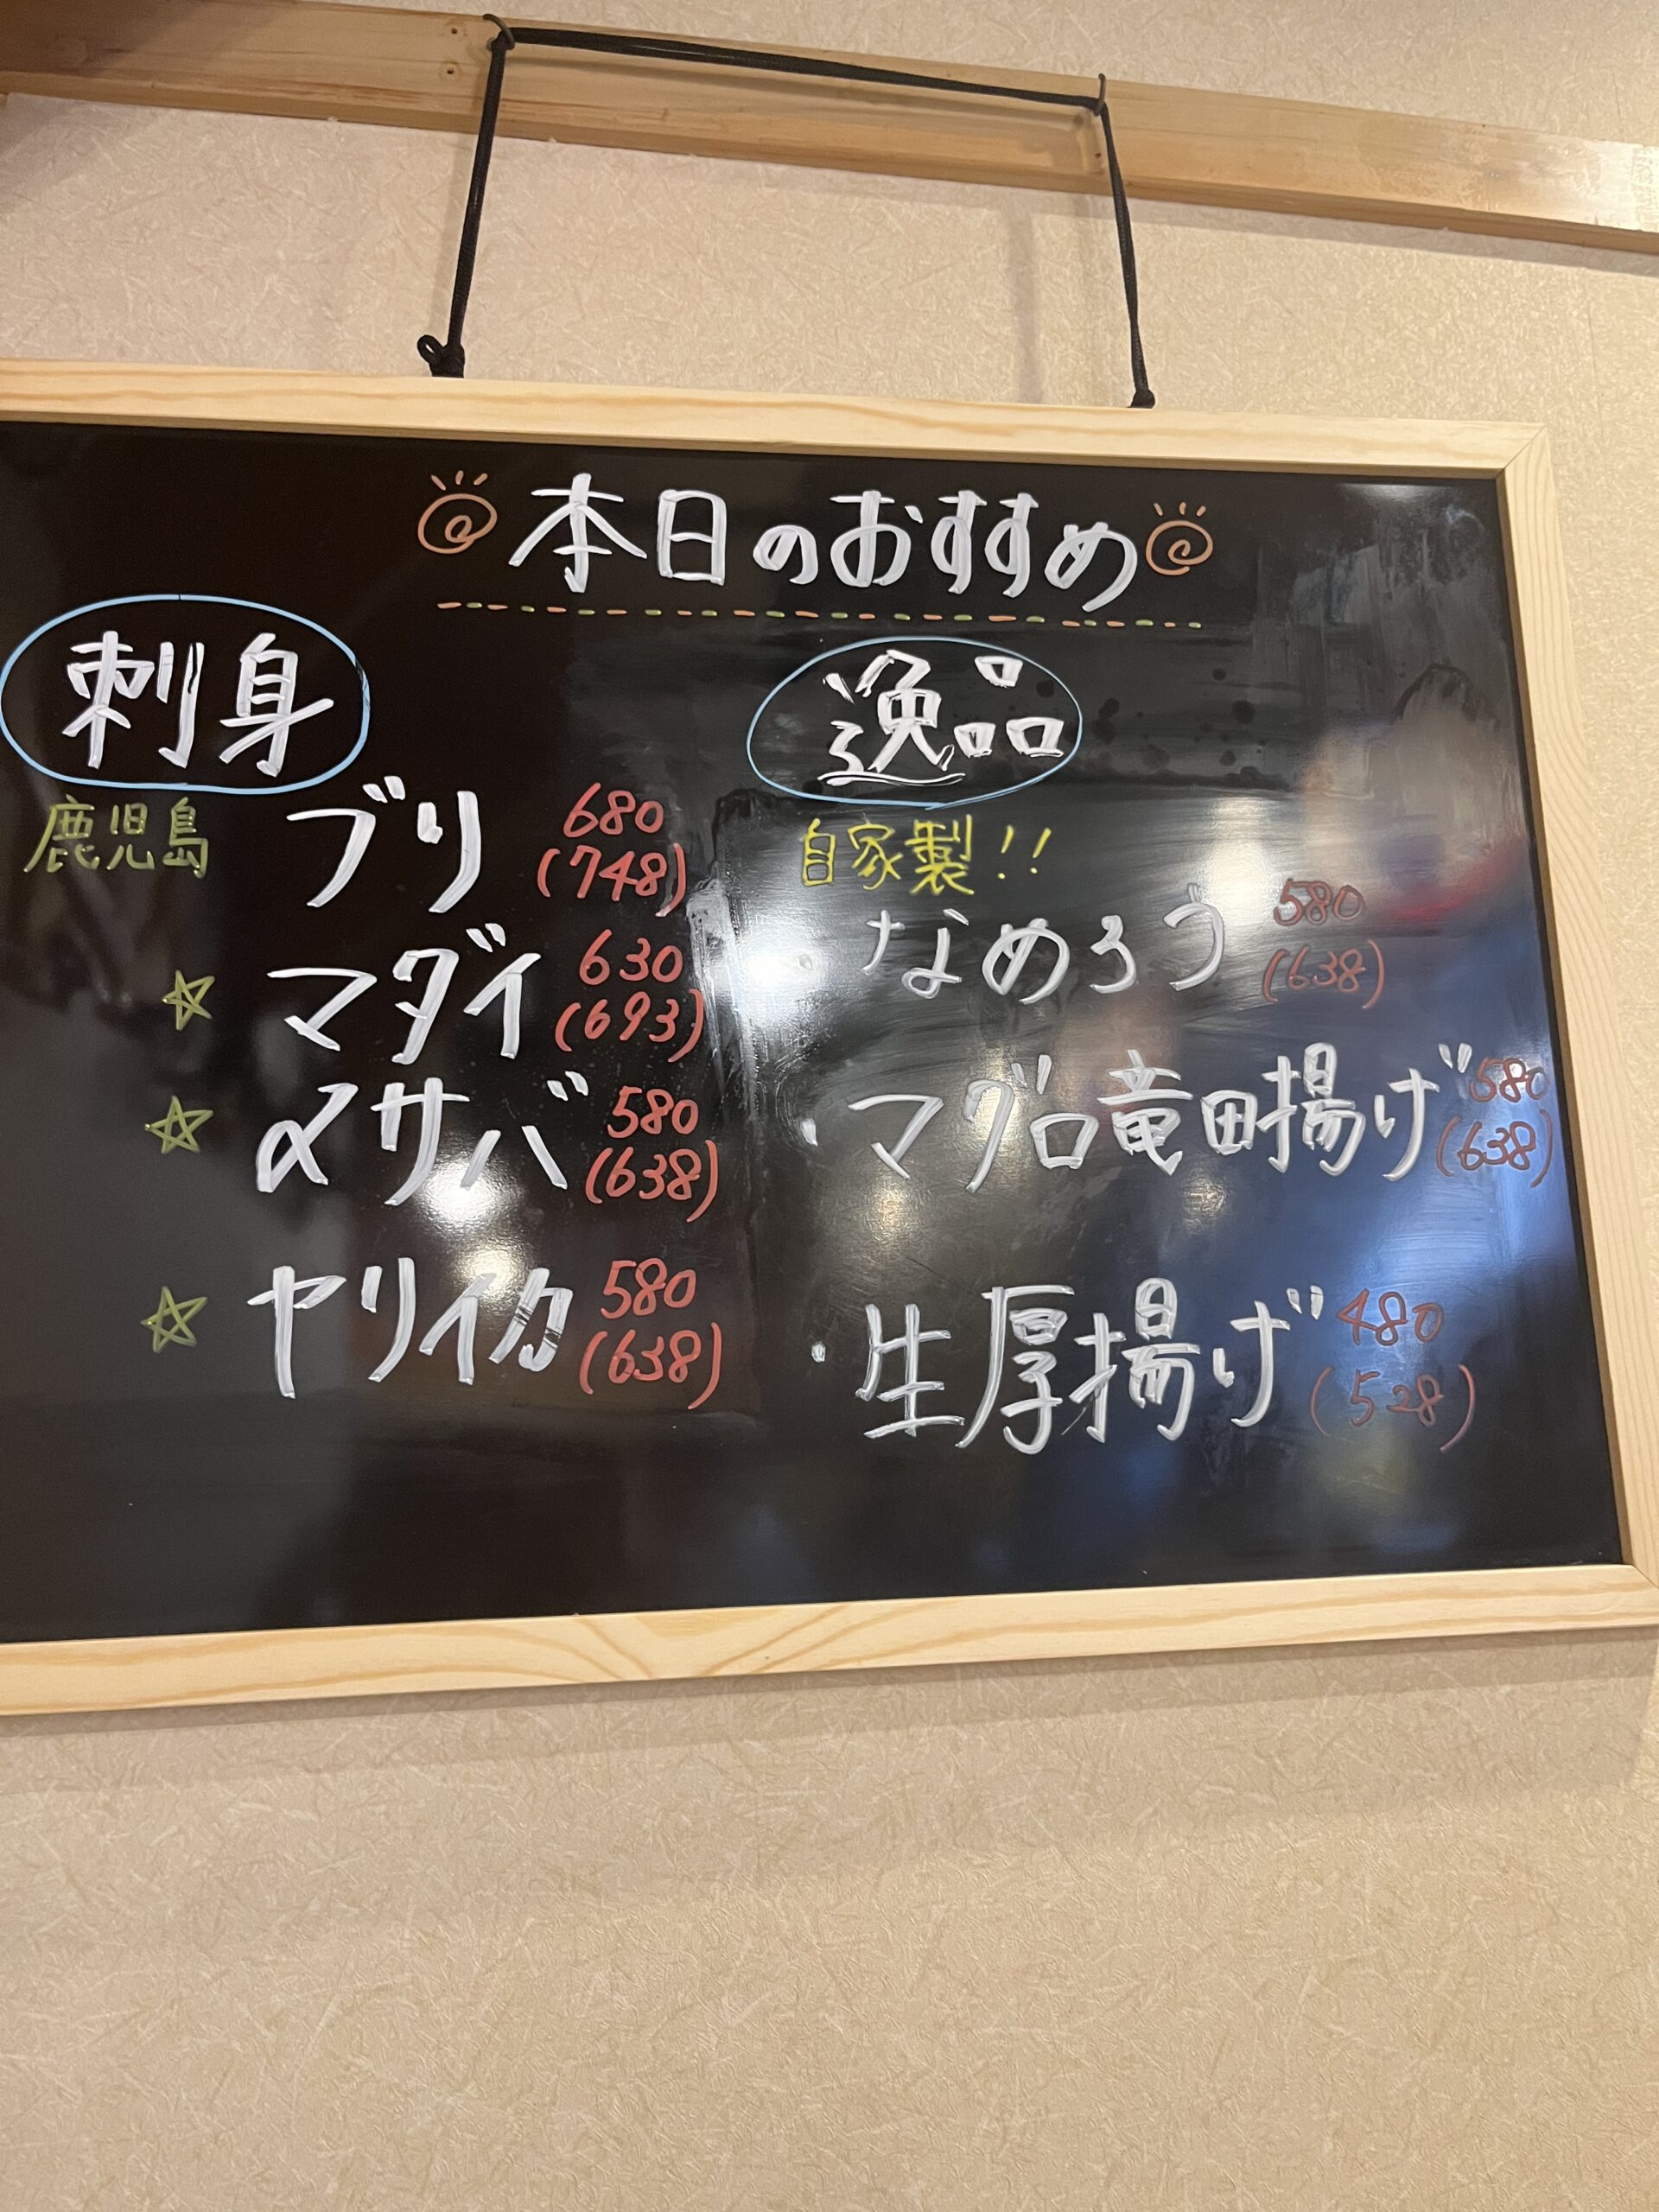 本日のおすすめ
刺身
鹿児島 ブリ 680
(748)
☆ マダイ 630
(693)
☆ 〆サバ 580
(638)
☆ ヤリイカ 580
(638)
逸品
自家製!!
・なめろう 580
(638)
・マグロ竜田揚げ 580
(638)
・生厚揚げ 480
(528)